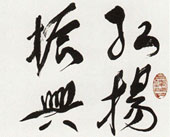 弘揚
振興